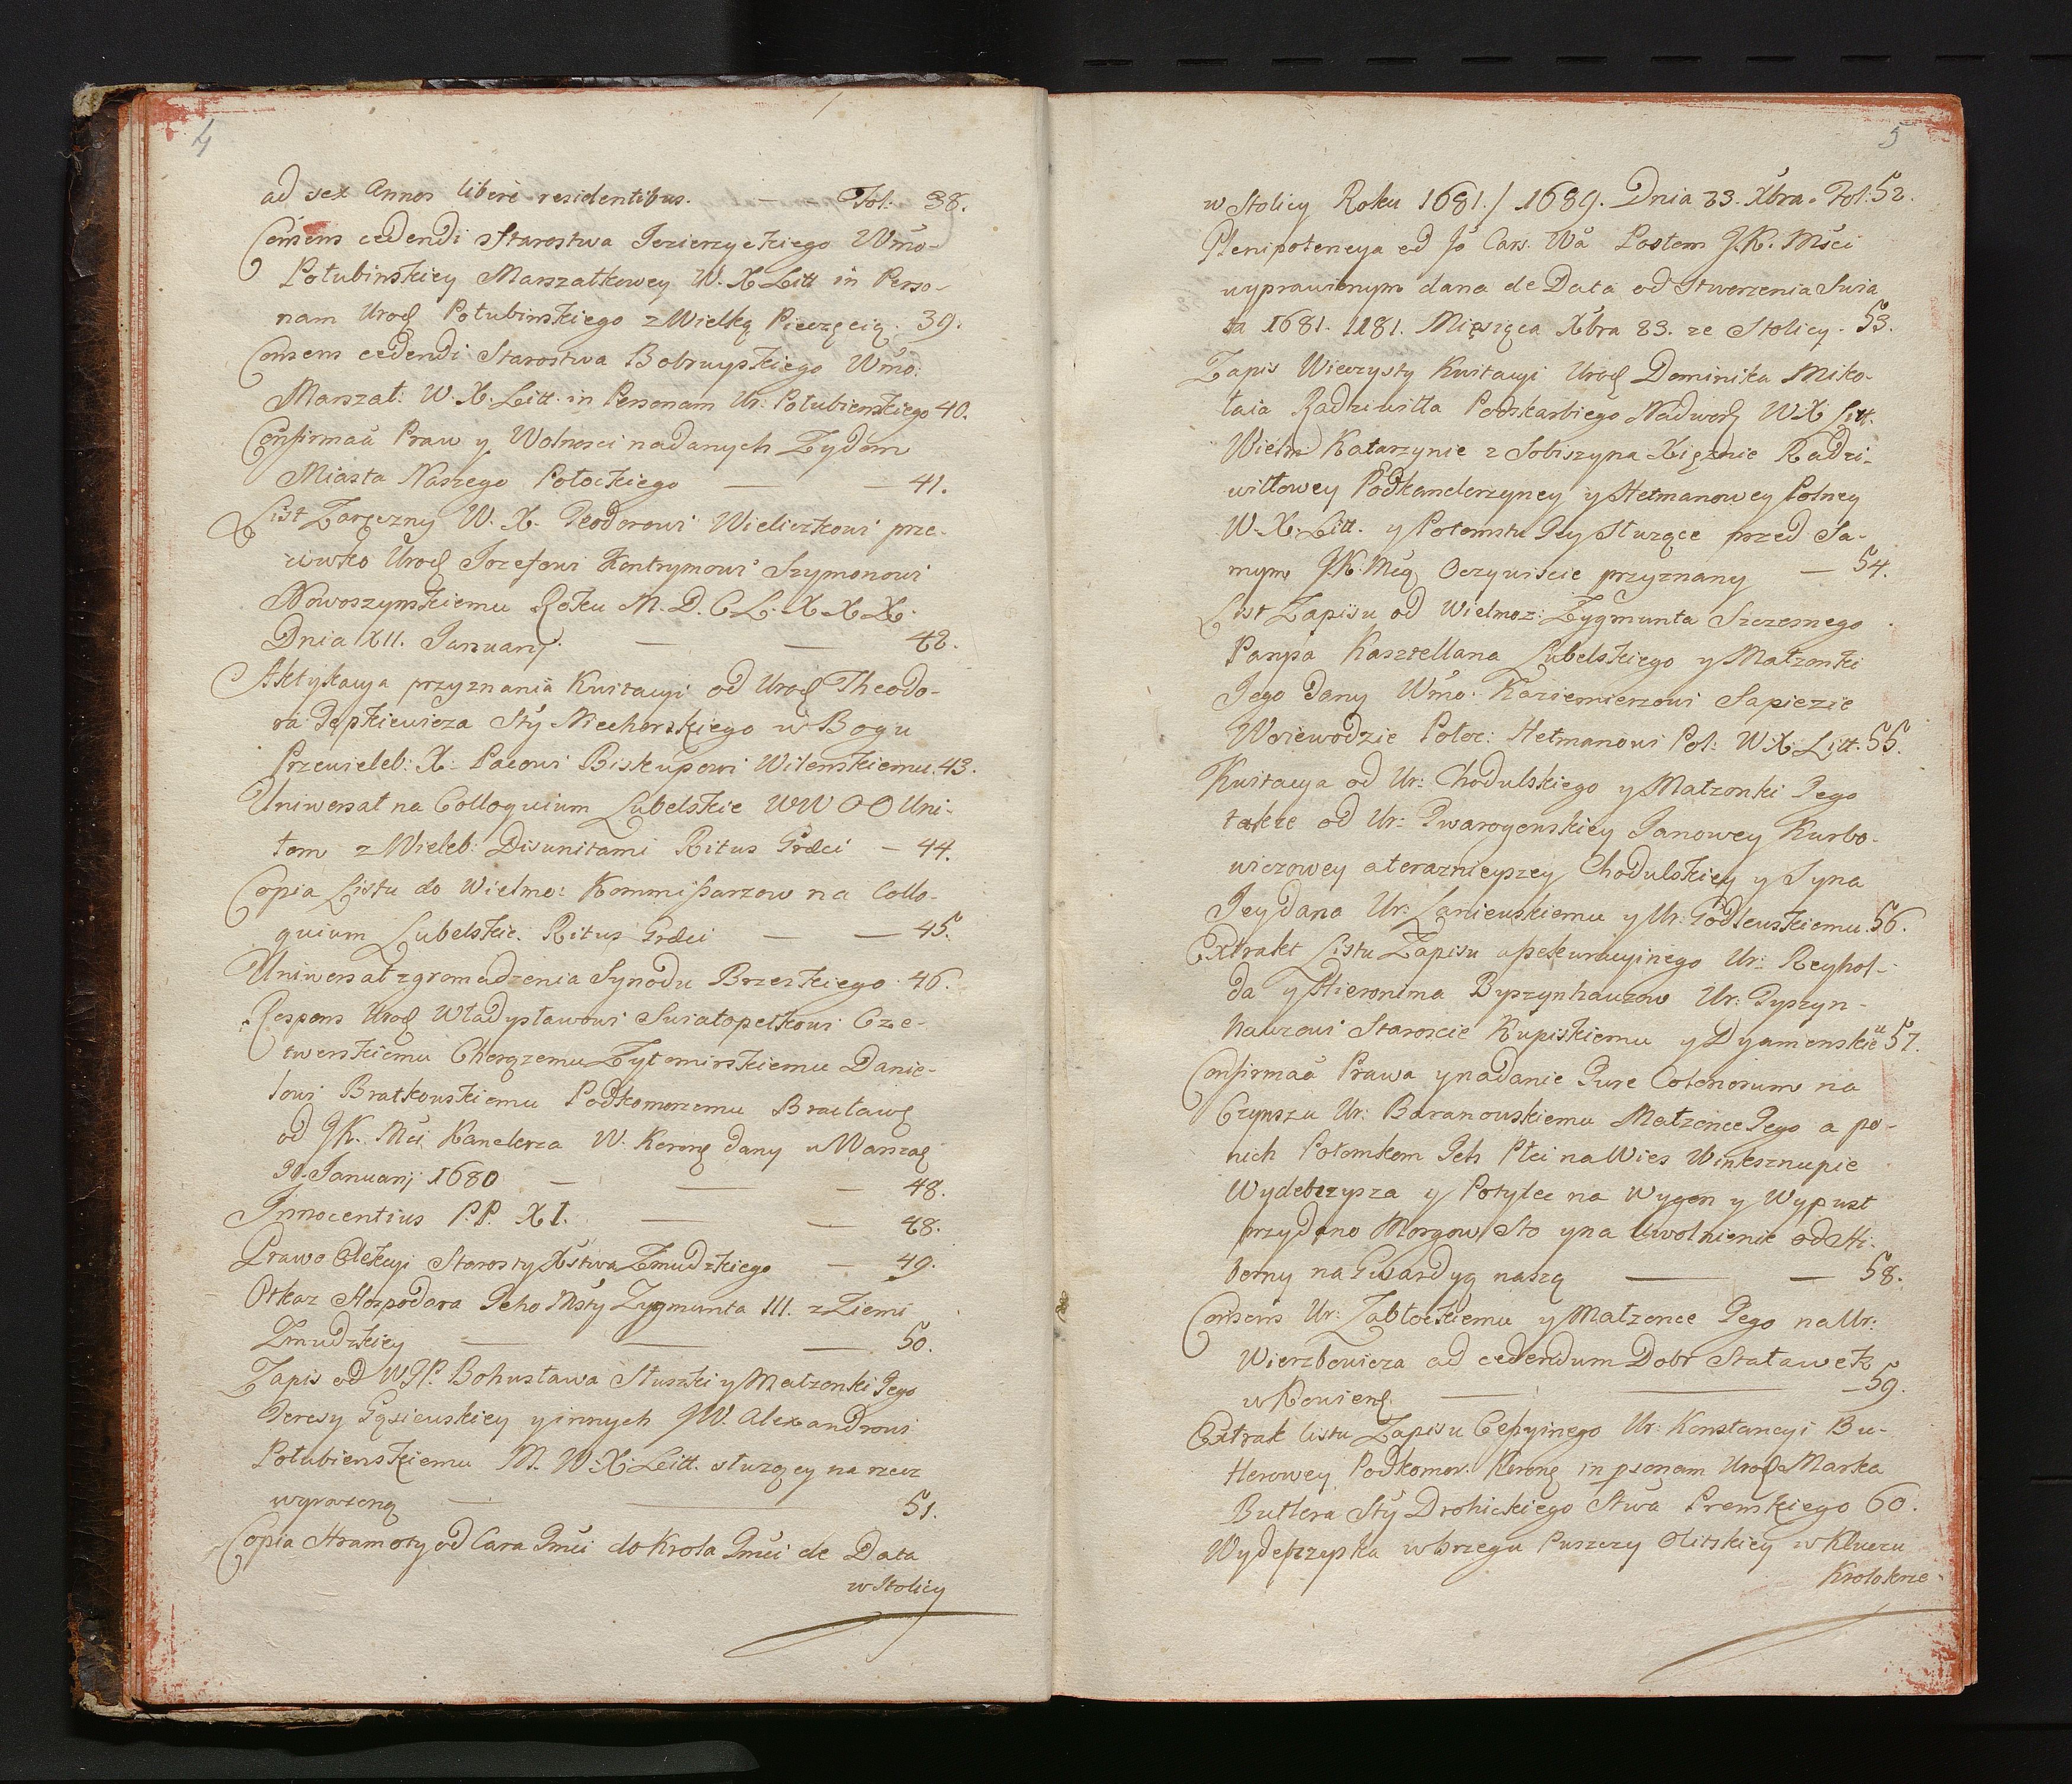 4
ad sex Annos liberè residentibus. — — Fol: 38.
Consens cedendi Starostwa Jezierzyckiego Wmo-
Połubinskiey Marszałkowey W. X Litt in Perso-
nam Urod Połubinskiego z Wielką Pieczęcią. 39.
Consens cedendi Starostwa Bobruyskiego Wmo:
Marszał: W. X. Litt: in Personam Ur: Połubienskiego 40.
Confirmaa Praw y Wolnosci nadanych Zydom
Miasta Naszego Połockiego — — 41.
List Zaręczny W. X. Teodorowi Wieliczkowi prze-
ciwko Urod Jozefowi Kontrymowi Szymonowi
Nowoszynskiemu Roku M. D. C L. X X X.
Dnia XII. Januarij. — — 42.
Aktykacya przyznania Kwitacyi od Urod Theodo-
ra Depkiewicza Sty Niechorskiego w Bogu
Przewieleb: X: Pacowi Biskupowi Wilenskiemu. 43.
Uniwersał na Colloquium Lubelskie WW OO Uni-
tom z Wieleb: Disunitami Ritus Græci — 44.
Copia Listu do Wielmo: Kommissarzow na Collo-
quium Lubelskie. Ritus Græci — — 45.
Uniwersał zgromadzenia Synodu Brzeskiego. 46.
Respons Urod Władysławowi Swiatopełkowi Cze-
twerskiemu Chorązemu Zytomirskiemu Danie-
lowi Bratkowskiemu Podkomorzemu Bracław
od JK. Mci Kanclerza W. Koron dany w Warsza
Januarij 1680 — — — 48.
Innocentius P.P. XI. — — 48.
Prawo Elekcyi Starosty Xstwa Zmudzkiego — 49.
Otkaz Hospodara Jeho Msty Zygmunta III. z Ziemi
Zmudzkiey — — — 50.
Zapis od WJP. Bohusława Słuszki y Małzonki Jego
Teresy Gąsiewskiey y innych JW. Alexandrowi
Połubienskiemu M. W. X. Litt. słuząey na rzecz
wyrazoną — — 51.
Copia Hramoty od Cara Jmci do Krola Jmci de Data
w Stolicy
5
w Stolicy Roku 1681./1689. Dnia 23. Xbra. Fol: 52.
Plenipotencya od Jo Cars. Wa Posłom J.K. Msci
wyprawionym dana de Data od Stworzenia Swia
ta 1681. 1181. Miesiąca Xbra 23. ze Stolicy. 53.
Zapis Wieczysty Kwitacyi Urod Dominika Miko-
łaia Radziwiłła Podskarbiego Nadwor W X Litt.
Wielm Katarzynie z Sobiszyna Xięznie Radzi-
wiłłowey Podkanclerzyney y Hetmanowey Polney
W. X. Litt. y Potomstu Jey Słuzące przed Sa-
mym J.K. Mcią Oczywiscie przyznany — 54.
List Zapisu od Wielmoz: Zygmunta Szczesnego
Pan̄pa Kasztellana Lubelskiego y Małzonki
Jego dany Wmo: Kaziemierzowi Sapiezie
Woiewodzie Połoc: Hetmanowi Pol: W.X. Litt. 55.
Kwitacya od Ur: Chodulskiego y Małzonki Jego
także od Ur: Dwarogonskiey Janowey Kurbo-
wiczowey a teraznieyszey Chodulskiey y Syna
Jey dana Ur: Laniewskiemu y Ur: Podlewskiemu. 56.
Extrakt Listu Zapisu assekuracyinego Ur: Reyhol-
da y Hieronima Byszynhauzow Ur: Dyszyn-
hauzowi Staroscie Kupiskiemu y Dyamenskie 57.
Confirmaa Prawa y nadanie Jure Colonorum na
Czynszu Ur: Baranowskiemu Małzonce Jego a po-
nich Potomkom Ich Płci na Wies Winksznupie
Wydebrzysza y Potylce na Wygon y Wypust
przydano Morgow Sto y na Uwolnienie od Hi-
berny na Gwardyą naszą — — 58.
Consens Ur: Zabłockiemu y Małzonce Jego na Ur:
Wierzbowicza ad cedendum Dobr Stataweł
w Kowien. — — 59.
Extrak listu Zapisu Cessyinego Ur: Konstancyi Bu-
tlerowey Podkomor. Koron in psonam Urod Marka
Butlera Sty Drohickiego Stwa Premskiego 60.
Wydebrzysza w brzegu Puszczy Olitskiey w Kluczu
Krolokrze-